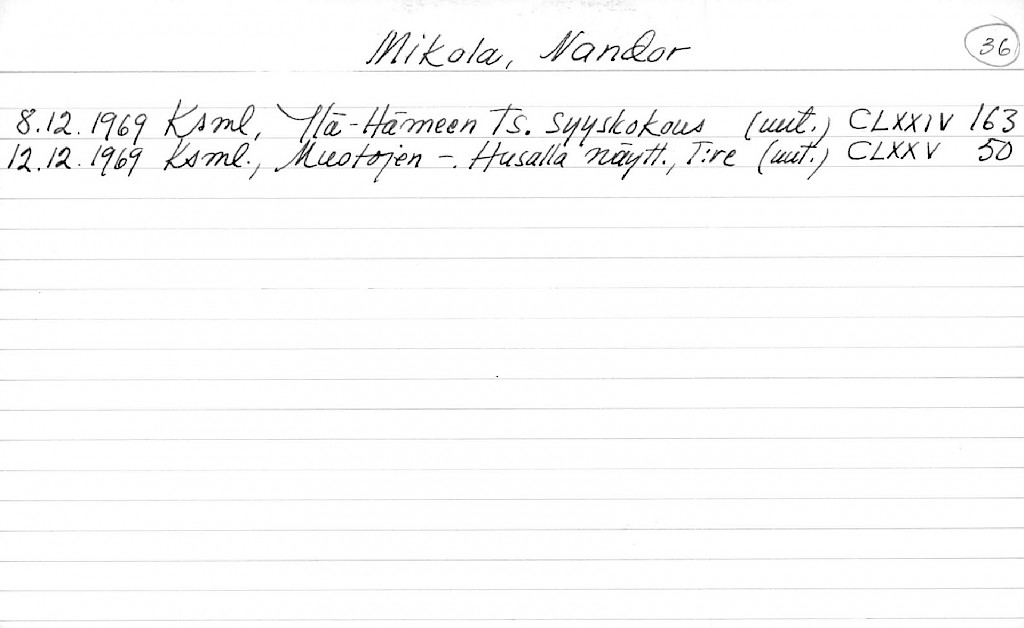 Mikola, Nandor 36
8.12.1969 Ksml, Ylä-Hämeen Ts. syyskokous (uut.) CLXXIV 163
12.12.1969 Ksml., Muotojen -. Husalla näytt., T:re (uut.) CLXXV 50